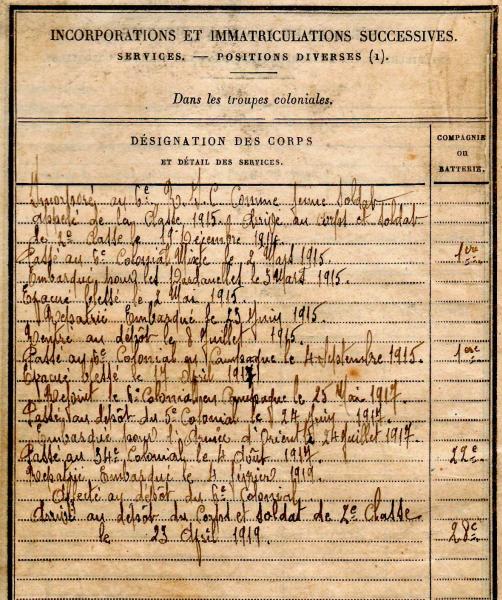 INCORPORATIONS ET IMMATRICULATIONS SUCCESSIVES.
SERVICES. — POSITIONS DIVERSES (1).
Dans les troupes coloniales.
DÉSIGNATION DES CORPS
ET DÉTAIL DES SERVICES.
COMPAGNIE
OU
BATTERIE.
Incorporé au 6e R.I.C. Comme Jeune Soldat
appelé de la Classe 1915. Arrivé au corps et soldat
de 2e Classe le Décembre 1914
Passé au 6e Colonial Mixte le 2 Mars 1915. 1ère
Embarqué pour les Dardanelles le 3 Mars 1915.
Evacué blessé le 2 Mai 1915.
Rapatrié Embarqué le 23 Juin 1915.
Rentré au dépôt le 8 Juillet 1915.
Passé au Colonial en Campagne le 4 Septembre 1915. 1ère
Evacué blessé le 17 Avril 1917
Rejoint le Colonial en Campagne le 25 Mai 1917.
Passé au dépôt du 5e Colonial le 24 Juin 1917.
Embarqué pour l'Armée d'Orient le 24 Juillet 1917.
Passé au 34e Colonial le 4 Août 1917. 22e
Rapatrié Embarqué le 4 février 1919.
Affecté au dépôt du Colonial
Arrivé au dépôt du Corps et soldat de 2e Classe
le 23 Avril 1919. 28e